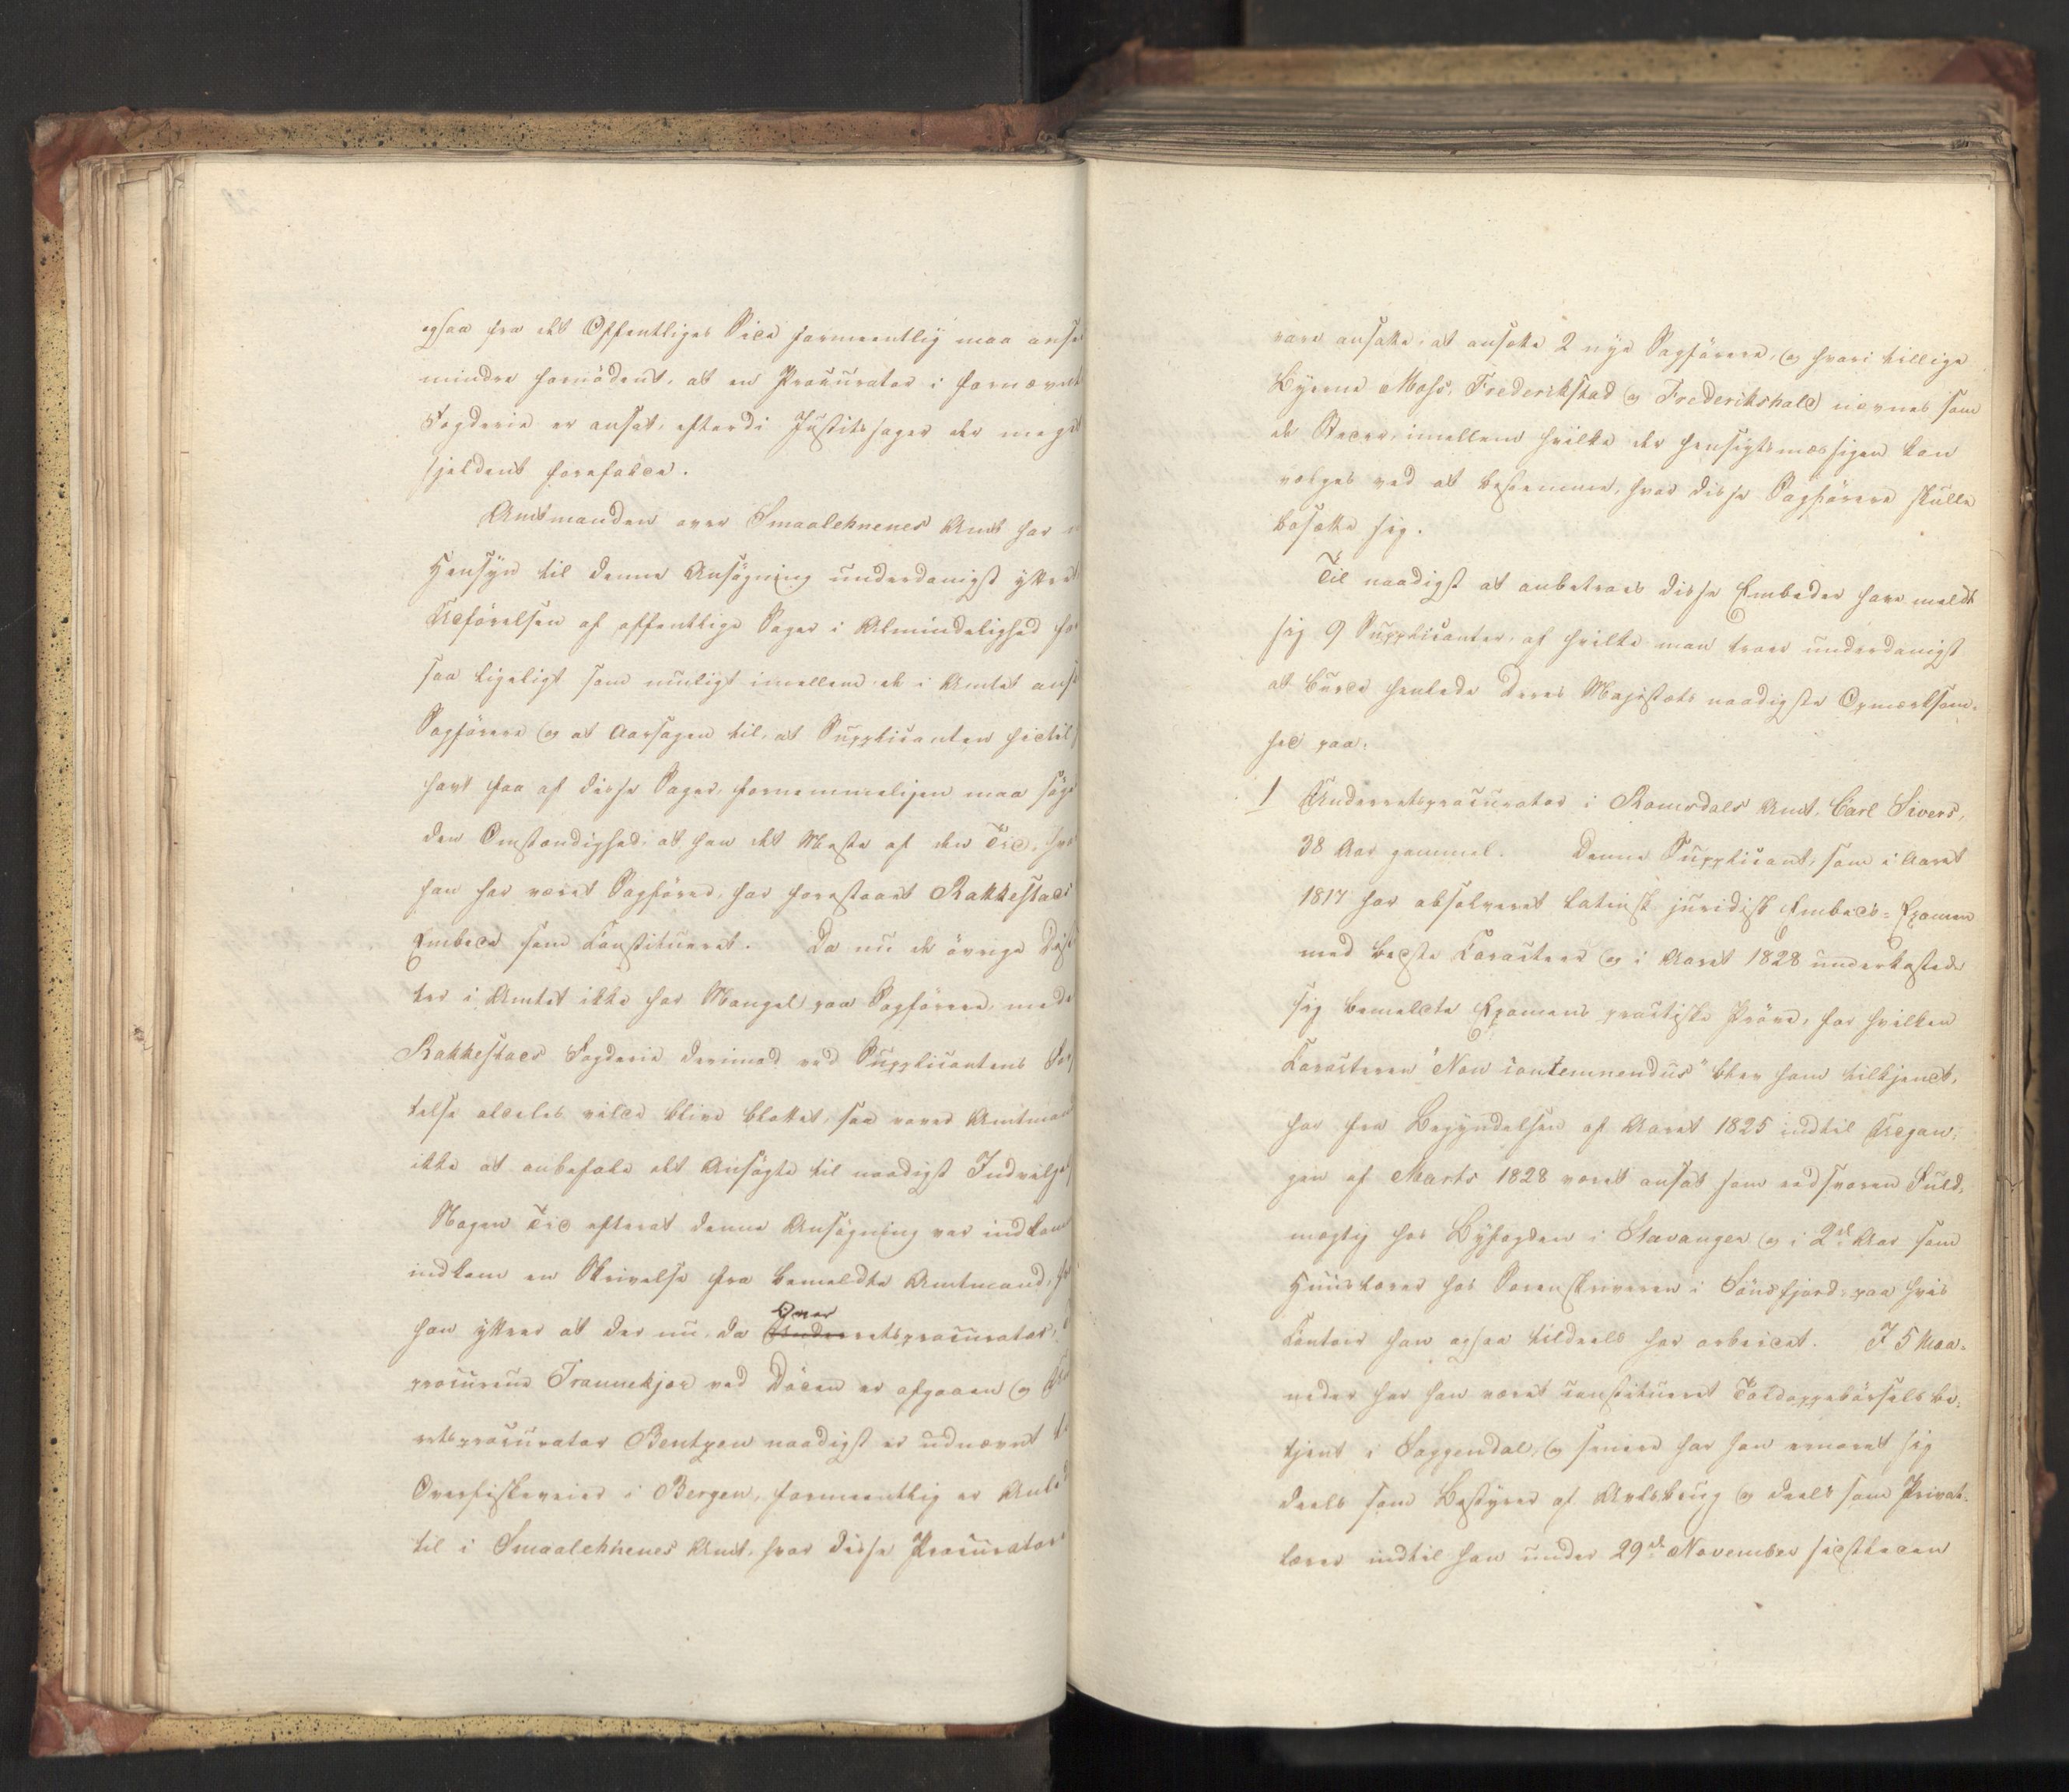 ogsaa fra det Offentliges Side formeentlig maa anse
mindre fornödent, at en Procurator i fornævnt
Fogderie er ansat, efterdi Justitssager der meget
sjeldent forefalde.
Amtmanden over Smaalehnenes Amt har i
Hensyn til denne Ansögning underdanigst yttret
Udförelsen af offentlige Sager i Almindelighed for
saa ligeligt som muligt imellem de i Amtet ansa
Sagförere og at Aarsagen til, at Supplicanten hidtil
havt faa af disse Sager, fornemmeligen maa söge
den Omstændighed, at han det Meste af den Tid, hvo
han har været Sagförer, har forestaaet Rakkestads
Embede som Constitueret. Da nu de övrige Dist
ter i Amtet ikke har Mangel paa Sagförere, meda
Rakkestads Fogderie derimod ved Supplicantens For
telse aldeles vilde blive blottet, saa vover Amtmand
ikke at anbefale det Ansögte til naadigst Indvilge
Nogen Tid efterat denne Ansögning var indkom
indkom en Skrivelse fra bemeldte Amtmand, h
Over
han yttrer at der nu, da Underretsprocurator,
procurene Trannekjær ved Döden er afgaaen og
retsprocurator Bentzen naadigst er udnævnt t
Overfiskeveier i Bergen, formeentlig er Anle
til i Smaalehnenes Amt, hvor disse Procuratore
vare ansatte, at ansætte 2 nye Sagförere, og hvori tillige
Byerne Moss, Frederikstad og Frederikshald nævnes som
de Steder, imellem hvilke der hensigtsmæssigen kan
vælges ved at bestemme, hvor disse Sagförere skulle
bosætte sig.
Til naadigst at anbetroes disse Embeder have meldt
sig 9 Supplicanter, af hvilke man troer underdanigst
at burde henlede Deres Majestæts naadigste Opmærksom-
hed paa:
1 Underretsprocurator i Romsdals Amt, Carl Sivers,
38 Aar gammel. Denne Supplicant, som i Aaret
1817 har absolveret latinsk juridisk Embeds-Examen
med bedste Caracteer og i Aaret 1828 underkastede
sig bemeldte Examens practiske Pröve, for hvilken
Caracteren "Non contemnendus" blev ham tilkjendt,
har fra Begyndelsen af Aaret 1825 indtil Udgan-
gen af Marts 1828 været ansat som eedsvoren Fuld-
mægtig hos Byfogden i Stavanger og i 2de Aar som
Huuslærer hos Sorenskriveren i Söndfjord, paa hvis
Contoir han ogsaa tildeels har arbeidet. I 5 Maa-
neder har han været constitueret Toldoppebörselsbe-
tjent i Soggendal, og senere har han ernæret sig
deels som Bestyrer af Avlsbrug og deels som Privat-
lærer indtil han under 29de November sidstleden